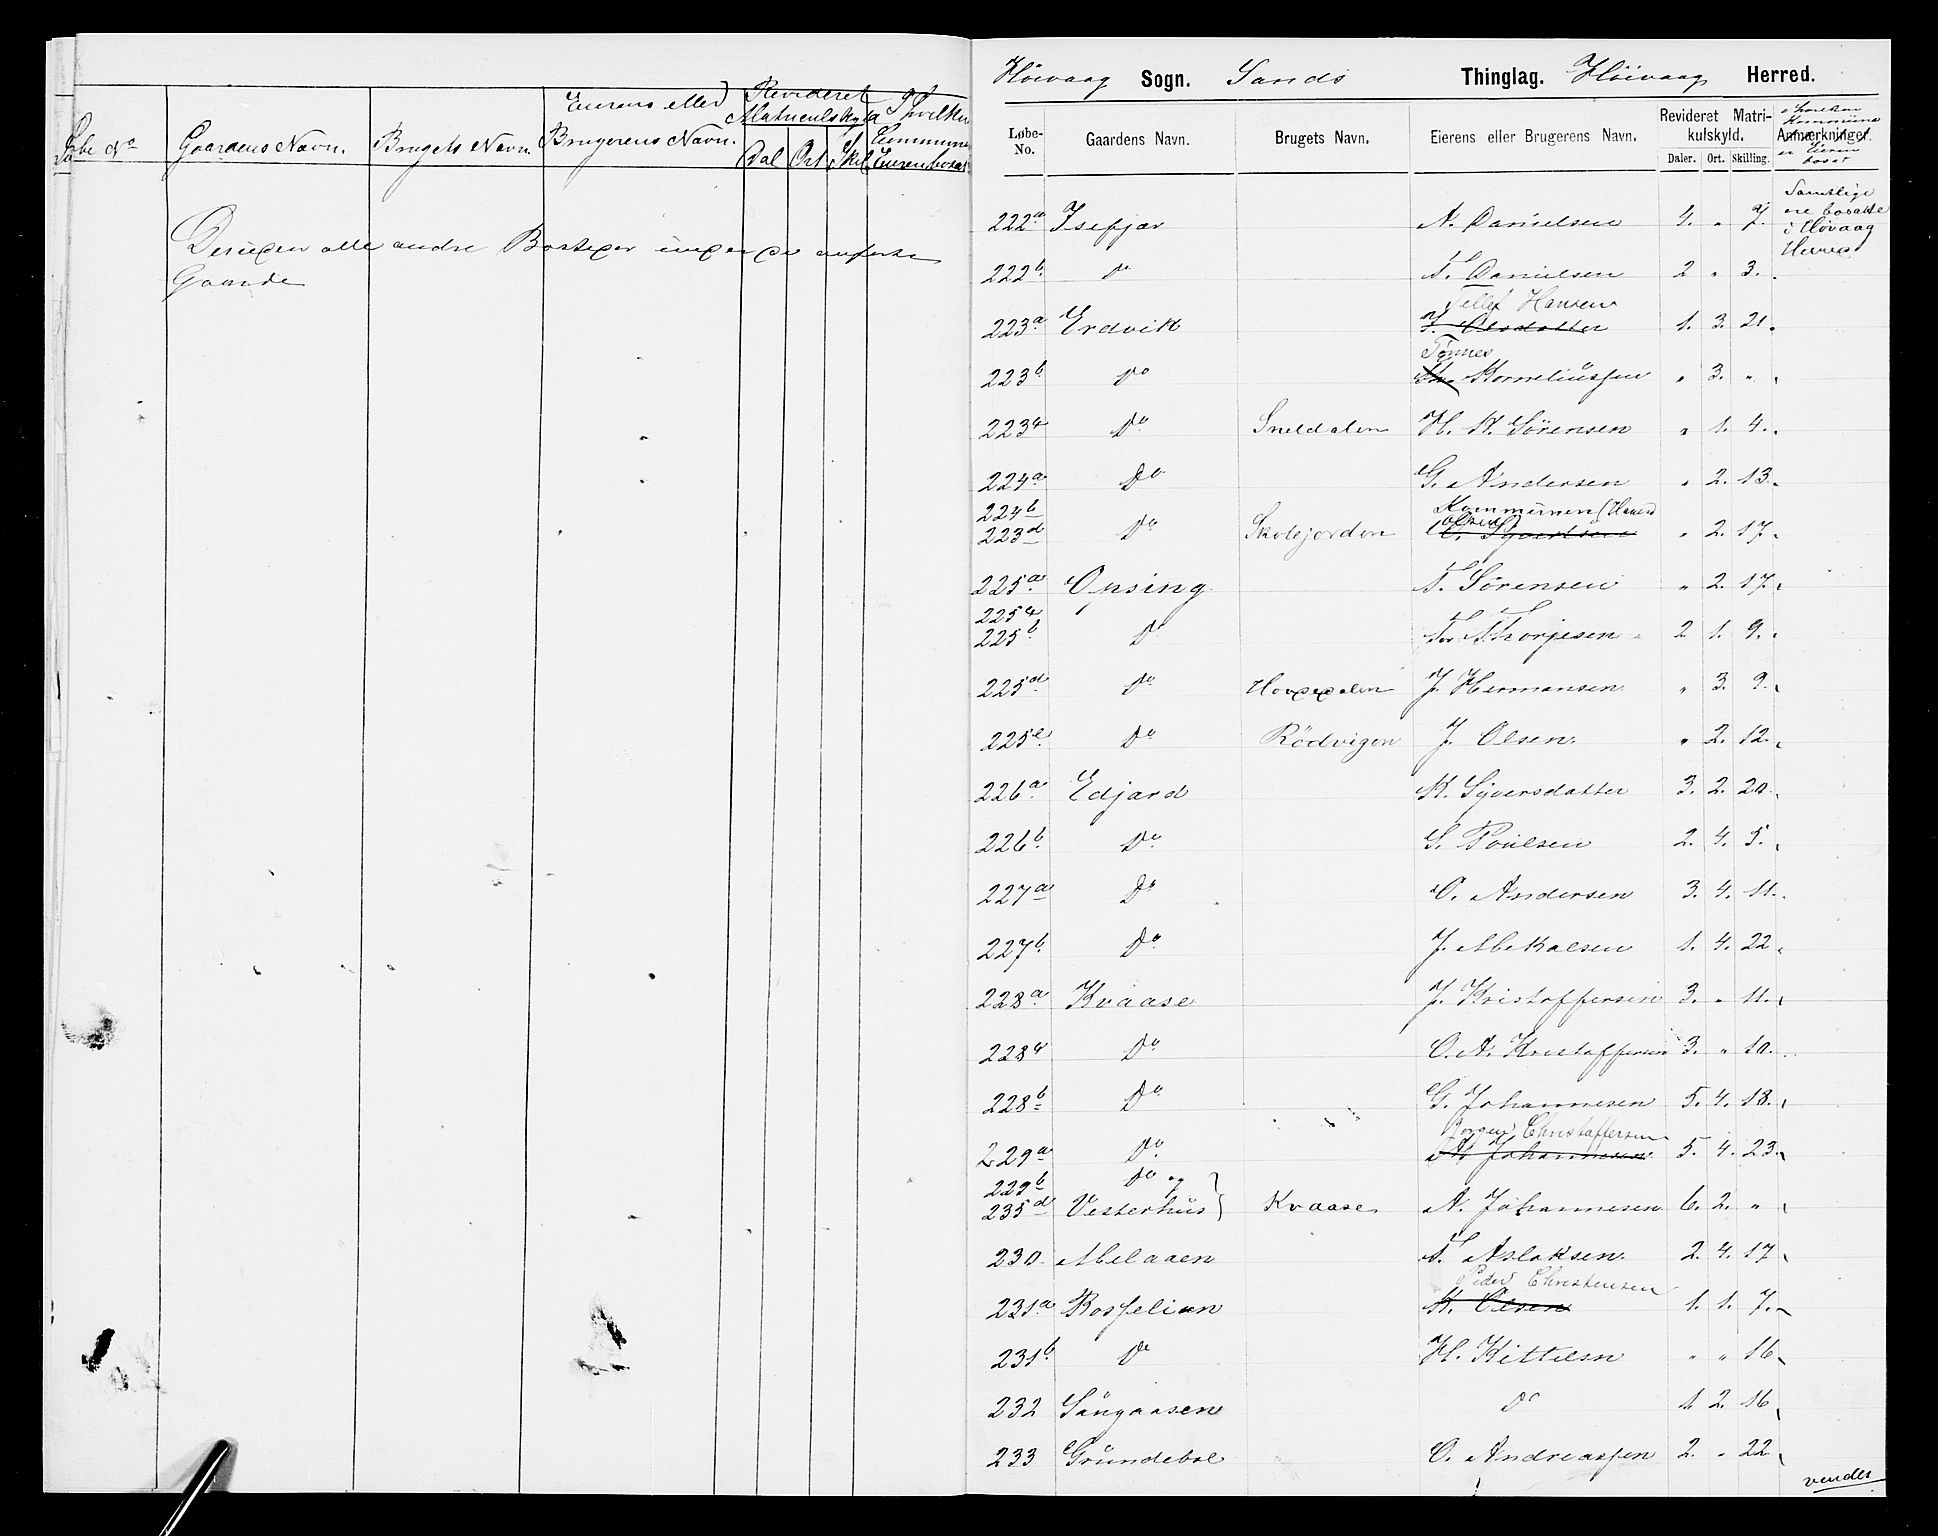 Løbe No Gaardens Navn. Brugets Navn. Eierens eller Brugerens Navn. Revideret Matriculskyld Dal Ort Skil I hvilken Commune Eieren bosat
Desuden alle andre Bosteder under de anførte
Gaarde
Höivaag Sogn. Sands Thinglag. Höivaag Herred.
Løbe-No. Gaardens Navn. Brugets Navn. Eierens eller Brugerens Navn. Revideret Matrikulskyld. Daler. Ort. Skilling. Anmærkninger. i hvilken Kommune er Eieren bosat
222a Isefjær A. Danielsen 4. " 7. Samtlige ere bosatte i Høvaag Herred
222b. Do T. Danielsen 2 " 3.
Tellef Hansen
223a Erdvik T. Olsdatter 1. 3. 21.
Tønnes
223b Do Korneliussen " 3. "
223c Do Sneldalen H. K. Sörensen " 1. 4.
224a Do G. Andersen " 2. 13.
224b Kommunen (Hans
Olsen)
223d Do Skolejorden Syvertsen " 2. 17.
225a Opsing T. Sörensen " 2. 17.
225c
225b Do T. Thorjesen 2 1. 9.
225d Do Hovdedalen J. Hermansen " 3. 9.
225e Do Rödvigen J. Olsen " 2. 12.
226a Edjard K. Syversdatter 3. 2. 20.
226b. Do S. Poulsen 2. 4. 5.
227a Do O. Andersen 3. 4. 11.
227b. Do J. Mekalsen 1. 4. 22
228a Kvaase J. Kristoffersen 3. " 11.
228c Do O. A. Kristoffersen 3. " 10.
228b Do G. Johannesen 5. 4. 18.
Jörgen Christoffersen
229a Do Johannesen 5. 4. 23.
229b Do og
235d Vesterhus Kvaase A. Johannesen 6. 2. "
230 Melaaen T. Aslaksen 2. 4. 17
Peder Christensen
231a Rosselien K. Olsen 1. 1. 7.
231b. Do H. Kittelsen " " 16
232 Sangaasen Do 1. 2. 16
233 Grundebol O. Andreassen 2. " 22
vendes